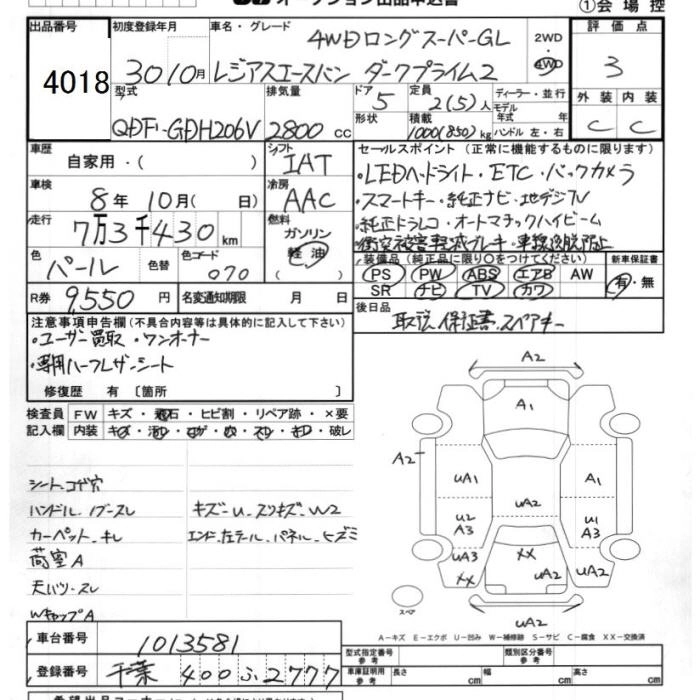 オークション出品申込書
①会場控
出品番号 4018
初度登録年月 30 10月
車名・グレード 4WDロングスーパーGL
レジアスエースバン ダークプライム2
2WD・4WD
評価点 3
型式 QDF-GDH206V
排気量 2800 cc
ドア 5
形状
定員 2(5)人
積載 1000(850)kg
ディーラー・並行
モデル年式 年式
ハンドル 左・右
外装 C
内装 C
車歴 自家用・( )
シフト IAT
車検 8年 10月( 日)
冷房 AAC
走行 7万3千430km
燃料 ガソリン 軽油 ( )
色 パール
色替
色コード 070
R券 9,550円
名変通知期限 月 日
セールスポイント(正常に機能するものに限ります)
・LEDヘッドライト・ETC・バックカメラ
・スマートキー・純正ナビ・地デジTV
・純正ドラレコ・オートマチックハイビーム
・衝突被害軽減ブレーキ・車線逸脱防止
装備品(純正品に限り○をつけてください)
PS PW ABS エアB AW
SR ナビ TV カワ
新車保証書 有・無
後日品 取説、保証書、スペアキー
注意事項申告欄(不具合内容等は具体的に記入して下さい)
・ユーザー買取・ワンオーナー
・専用ハーフレザーシート
修復歴 有 〔箇所 〕
検査員記入欄
FW キズ・飛石・ヒビ割・リペア跡・×要
内装 キズ・汚レ・コゲ・穴・スレ・キレ・破レ
シート、コゲ穴
ハンドル、ノブ-スレ
カーペット-キレ
荷室A
天バリ-スレ
WキャップA
キズ-U、スリキズ、W2
エンド、左テール、パネル、ヒズミ
A2
A1
A2
UA1
A1
UA2
U2
A3
U1
A3
UA3
XX
XX
UA2
UA2
UA2
スペア
A-キズ E-エクボ U-凹み W-補修跡 S-サビ C-腐食 XX-交換済
車台番号 1013581
登録番号 千葉 400 ふ 2777
型式指定番号 参考
類別区分番号 参考
車庫証明用 参考 長さ cm 幅 cm 高さ cm